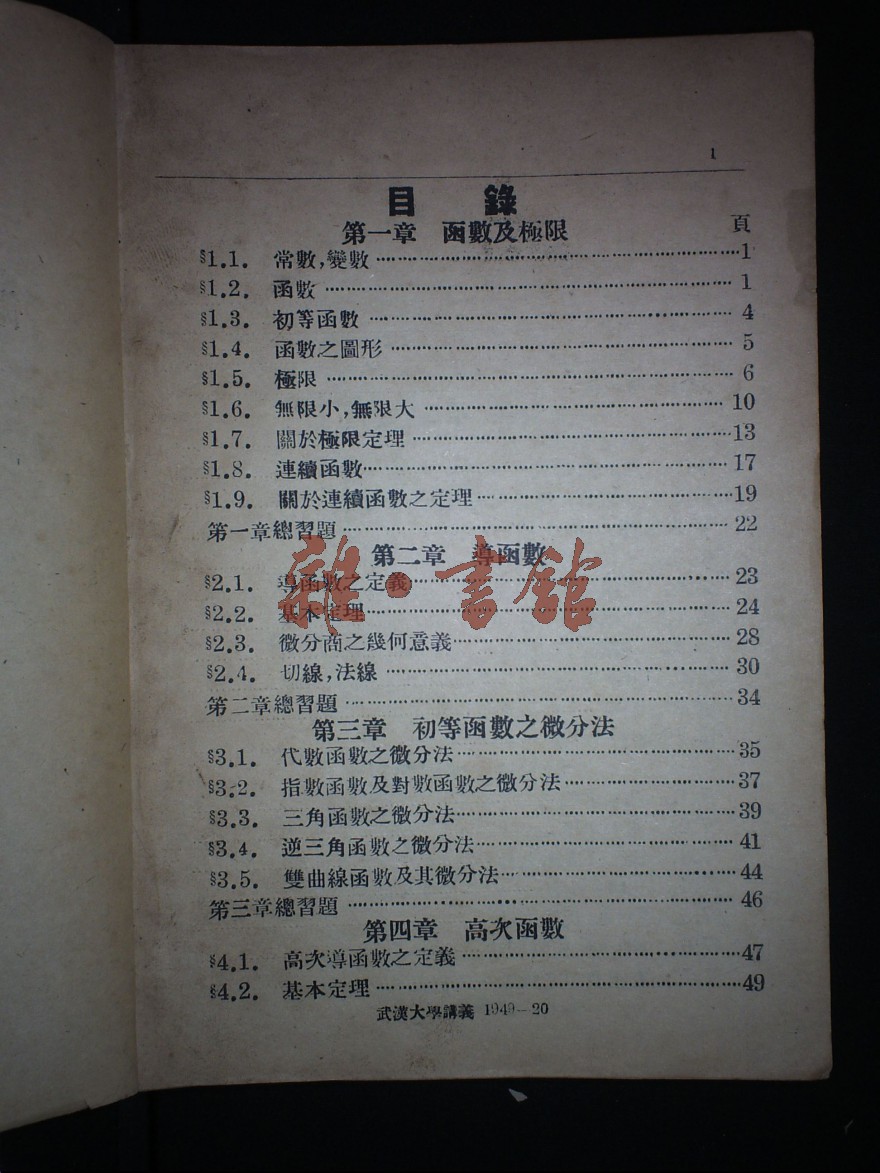 1
目 錄
頁
第一章 函數及極限
§1.1. 常數,變數 ……………………………………………1
§1.2. 函數 …………………………………………………… 1
§1.3. 初等函數 ……………………………………………… 4
§1.4. 函數之圖形 …………………………………………… 5
§1.5. 極限 …………………………………………………… 6
§1.6. 無限小,無限大 ……………………………………… 10
§1.7. 關於極限定理 …………………………………………13
§1.8. 連續函數……………………………………………… 17
§1.9. 關於連續函數之定理 …………………………………19
第一章總習題 ……………………………………………… 22
第二章 導函數
§2.1. 導函數之定義 …………………………………………23
§2.2. 基本定理……………………………………………… 24
§2.3. 微分商之幾何意義…………………………………… 28
§2.4. 切線,法線 …………………………………………… 30
第二章總習題 ……………………………………………… 34
第三章 初等函數之微分法
§3.1. 代數函數之微分法 ……………………………………35
§3.2. 指數函數及對數函數之微分法 ………………………37
§3.3. 三角函數之微分法…………………………………… 39
§3.4. 逆三角函數之微分法………………………………… 41
§3.5. 雙曲線函數及其微分法……………………………… 44
第三章總習題 ……………………………………………… 46
第四章 高次函數
§4.1. 高次導函數之定義 ……………………………………47
§4.2. 基本定理 ………………………………………………49
武漢大學講義 1949—20
雜·書館